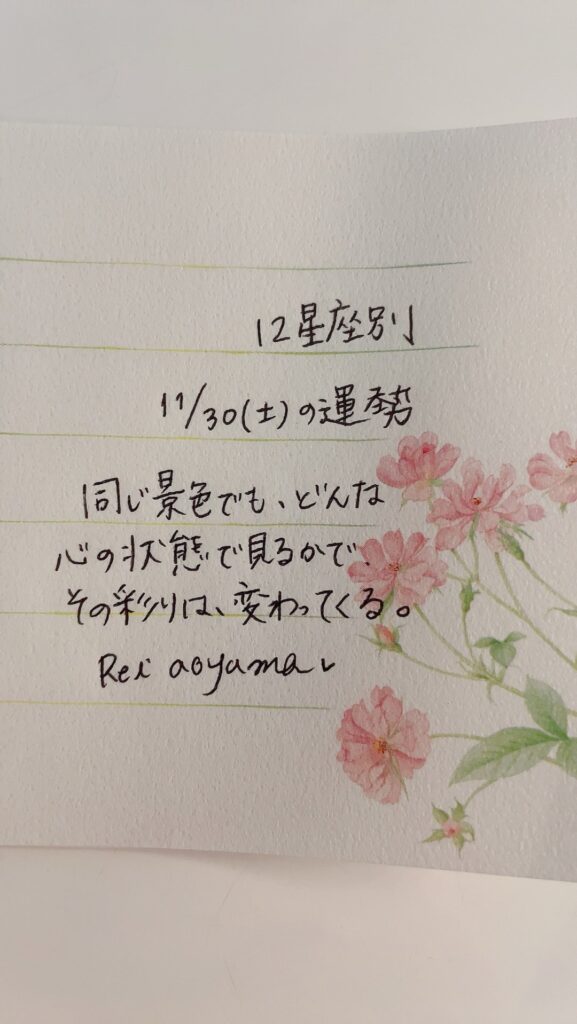 12星座別
11/30(土)の運勢
同じ景色でも、どんな
心の状態で見るかで、
その彩りは、変わってくる。
Rei aoyama